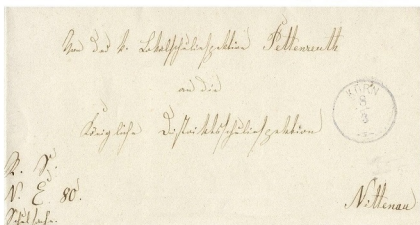 Von der k. Lokalschulinspektion Pettenreuth
an die
Königliche Distriktsschulinspektion
8
4
R. S.
N. E. 80.
Nittenau
Schulsache.